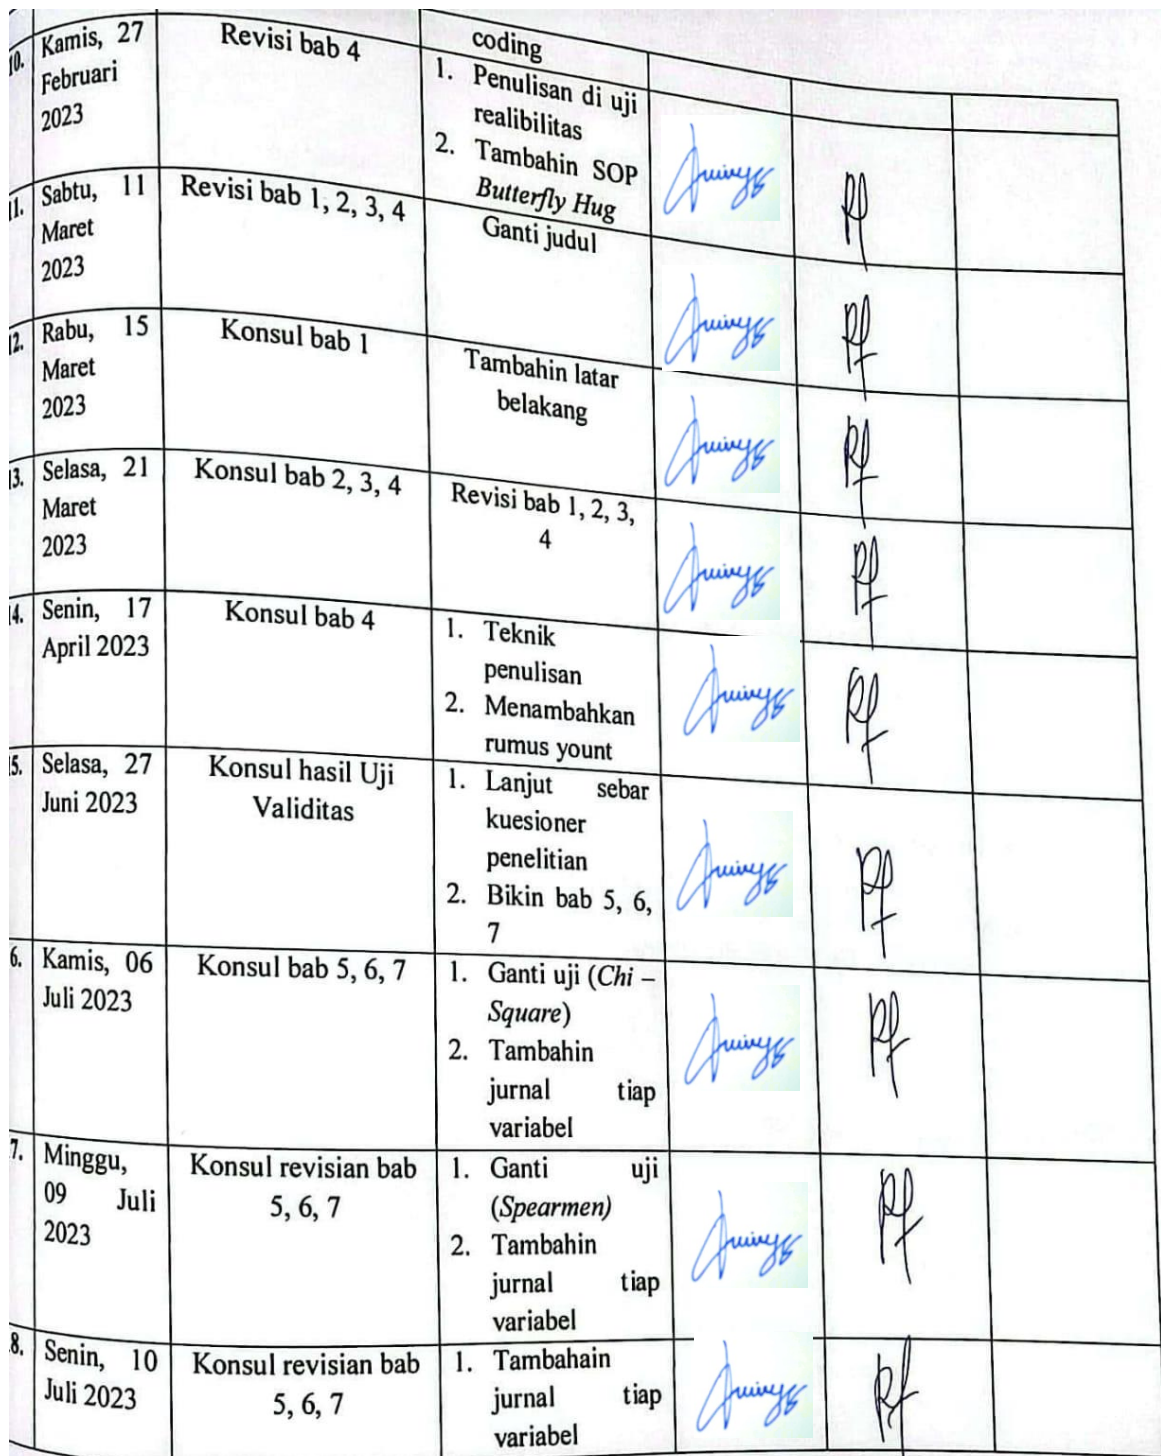 coding
10.
Kamis, 27
Februari
2023
Revisi bab 4
1. Penulisan di uji
realibilitas
2. Tambahin SOP
Butterfly Hug
11.
Sabtu, 11
Maret
2023
Revisi bab 1, 2, 3, 4
Ganti judul
12.
Rabu, 15
Maret
2023
Konsul bab 1
Tambahin latar
belakang
3.
Selasa, 21
Maret
2023
Konsul bab 2, 3, 4
Revisi bab 1, 2, 3,
4
4.
Senin, 17
April 2023
Konsul bab 4
1. Teknik
penulisan
2. Menambahkan
rumus yount
5.
Selasa, 27
Juni 2023
Konsul hasil Uji
Validitas
1. Lanjut sebar
kuesioner
penelitian
2. Bikin bab 5, 6,
7
6.
Kamis, 06
Juli 2023
Konsul bab 5, 6, 7
1. Ganti uji (Chi –
Square)
2. Tambahin
jurnal tiap
variabel
7.
Minggu,
09 Juli
2023
Konsul revisian bab
5, 6, 7
1. Ganti uji
(Spearmen)
2. Tambahin
jurnal tiap
variabel
8.
Senin, 10
Juli 2023
Konsul revisian bab
5, 6, 7
1. Tambahain
jurnal tiap
variabel